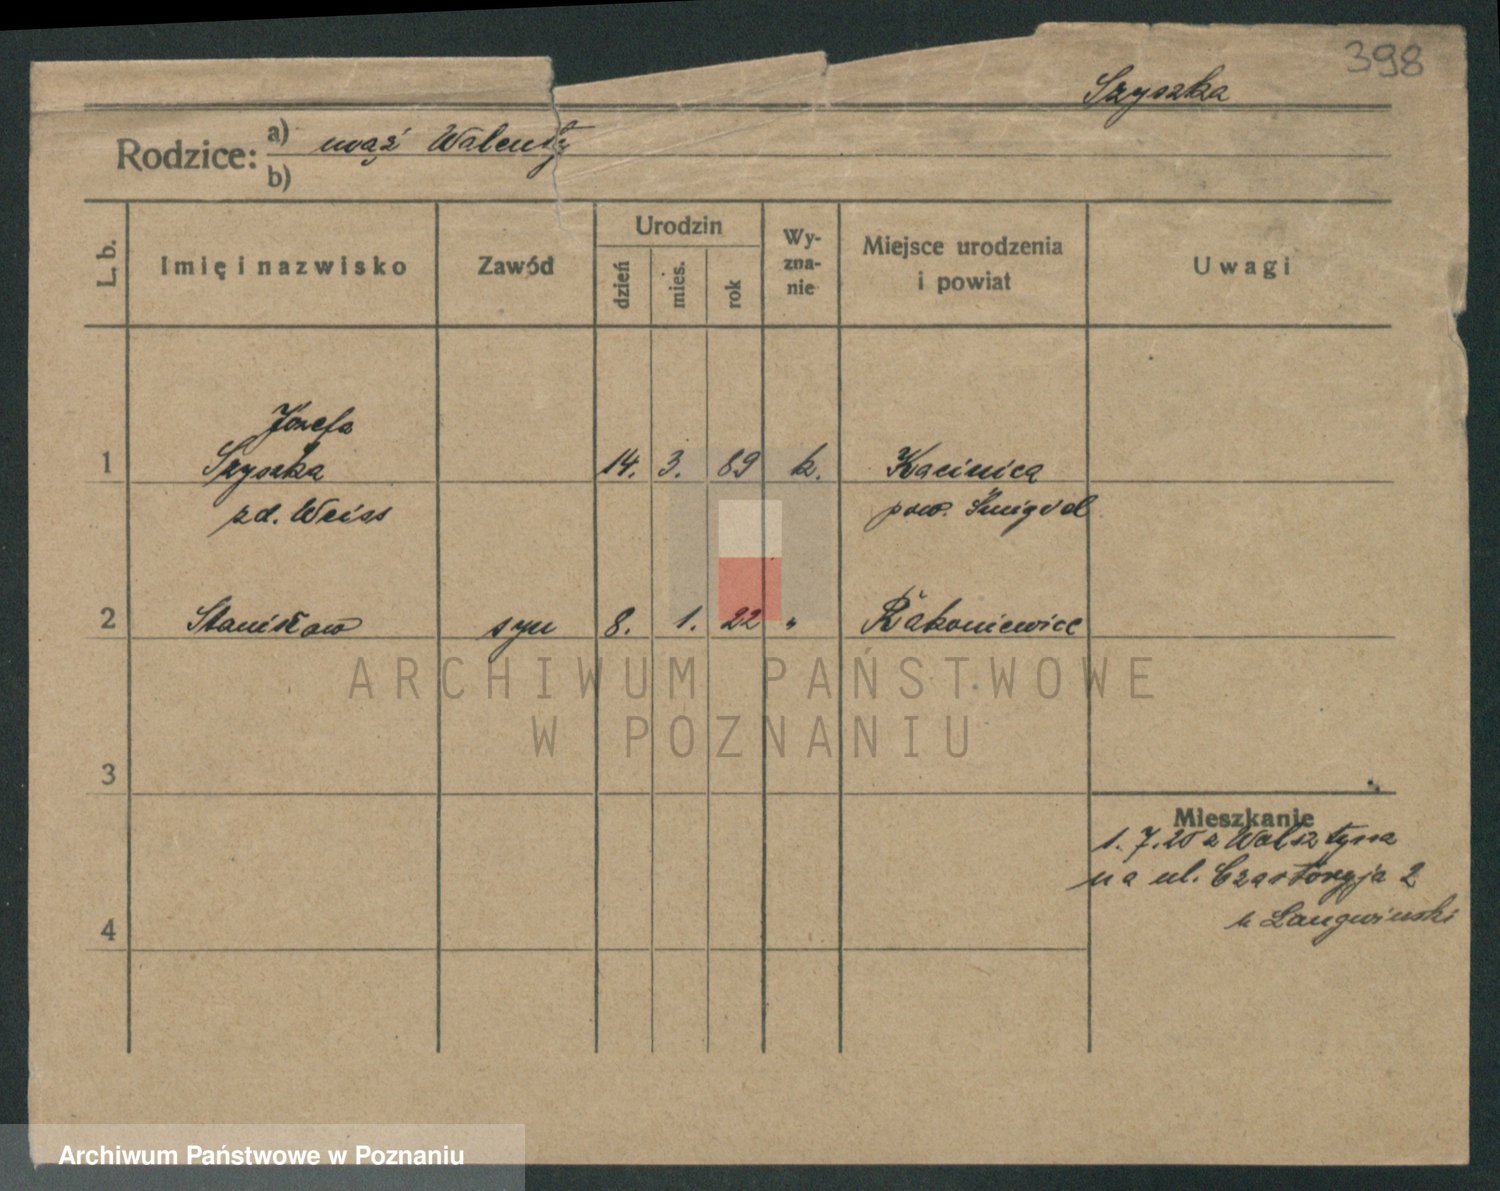 398
Szyszka
Rodzice: a) mąż Walenty
b)
L. b.
Imię i nazwisko
Zawód
Urodzin
dzień
mies.
rok
Wy-
zna-
nie
Miejsce urodzenia
i powiat
Uwagi
Józefa
1 Szyszka 14. 3. 89 k. Kacinica
zd. Weiss pow. Śmigiel
2 Stanisław syn 8. 1. 22 " Rakoniewice
ARCHIWUM PAŃSTWOWE
W POZNANIU
3
Mieszkanie
1. 7. 25 z Wolsztyna
na ul. Czartoryja 2
u Langwinski
4
Archiwum Państwowe w Poznaniu